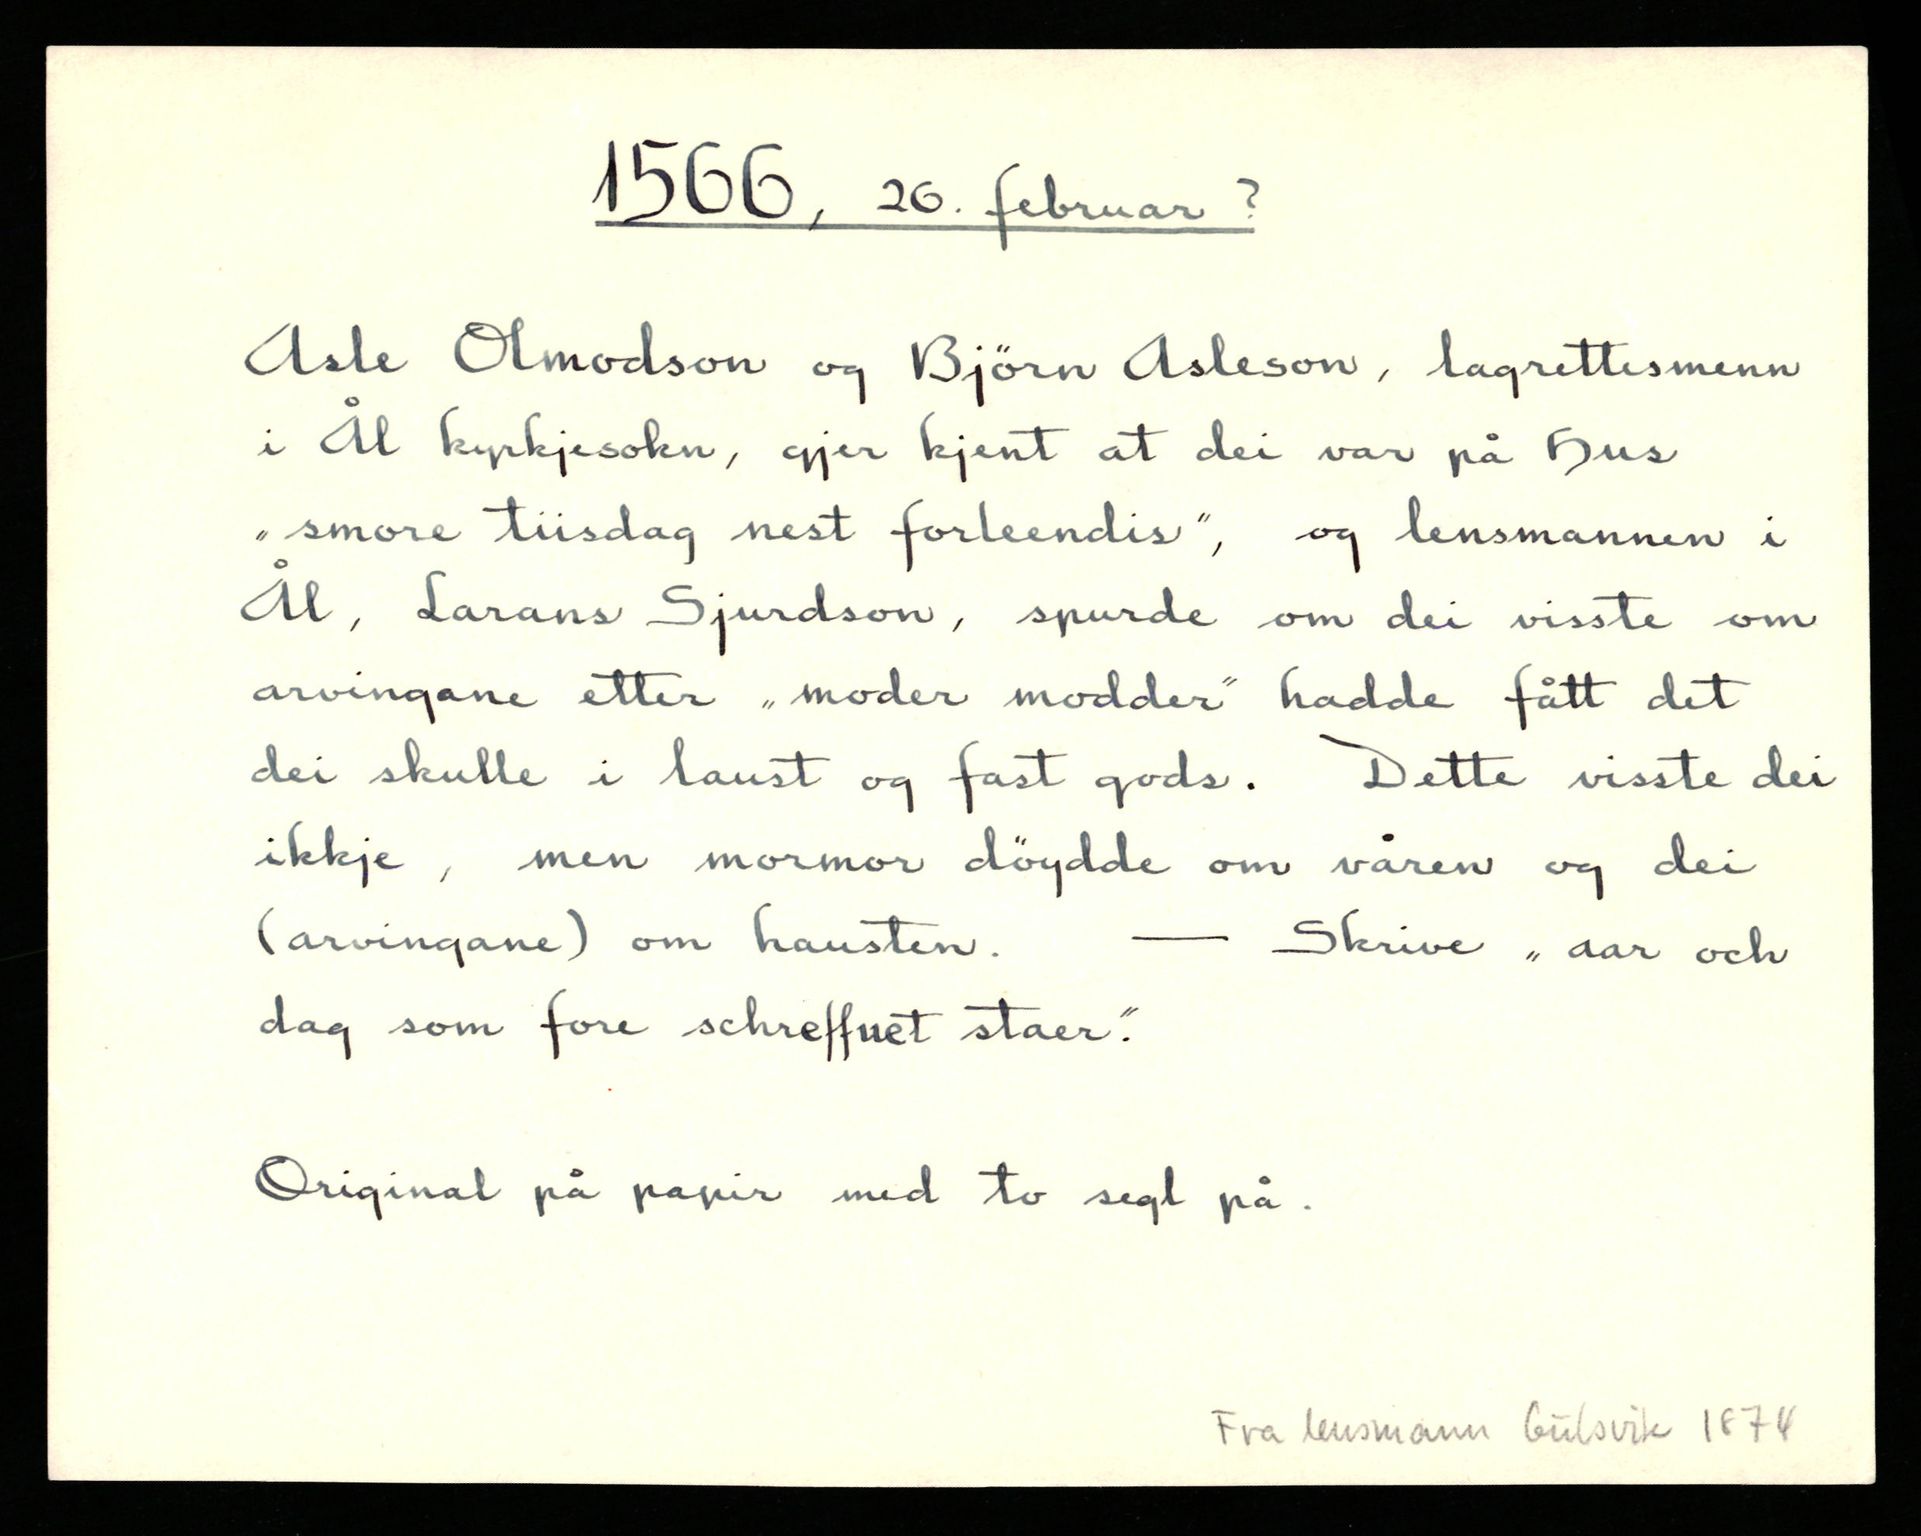 1566, 26. februar ?
Asle Olmodson og Björn Asleson, lagrettesmenn
i Ål kyrkjesokn, gjer kjent at dei var på Hus
„smore tiisdag nest forleendis”, og lensmannen i
Ål, Larans Sjurdson, spurde om dei visste om
arvingane etter „moder modder” hadde fått det
dei skulle i laust og fast gods. Dette visste dei
ikkje, men mormor döydde om våren og dei
(arvingane) om hausten. — Skrive „aar och
dag som fore schreffuet staer”.
Original på papir med to segl på.
Fra lensmann Gulsvik 1874